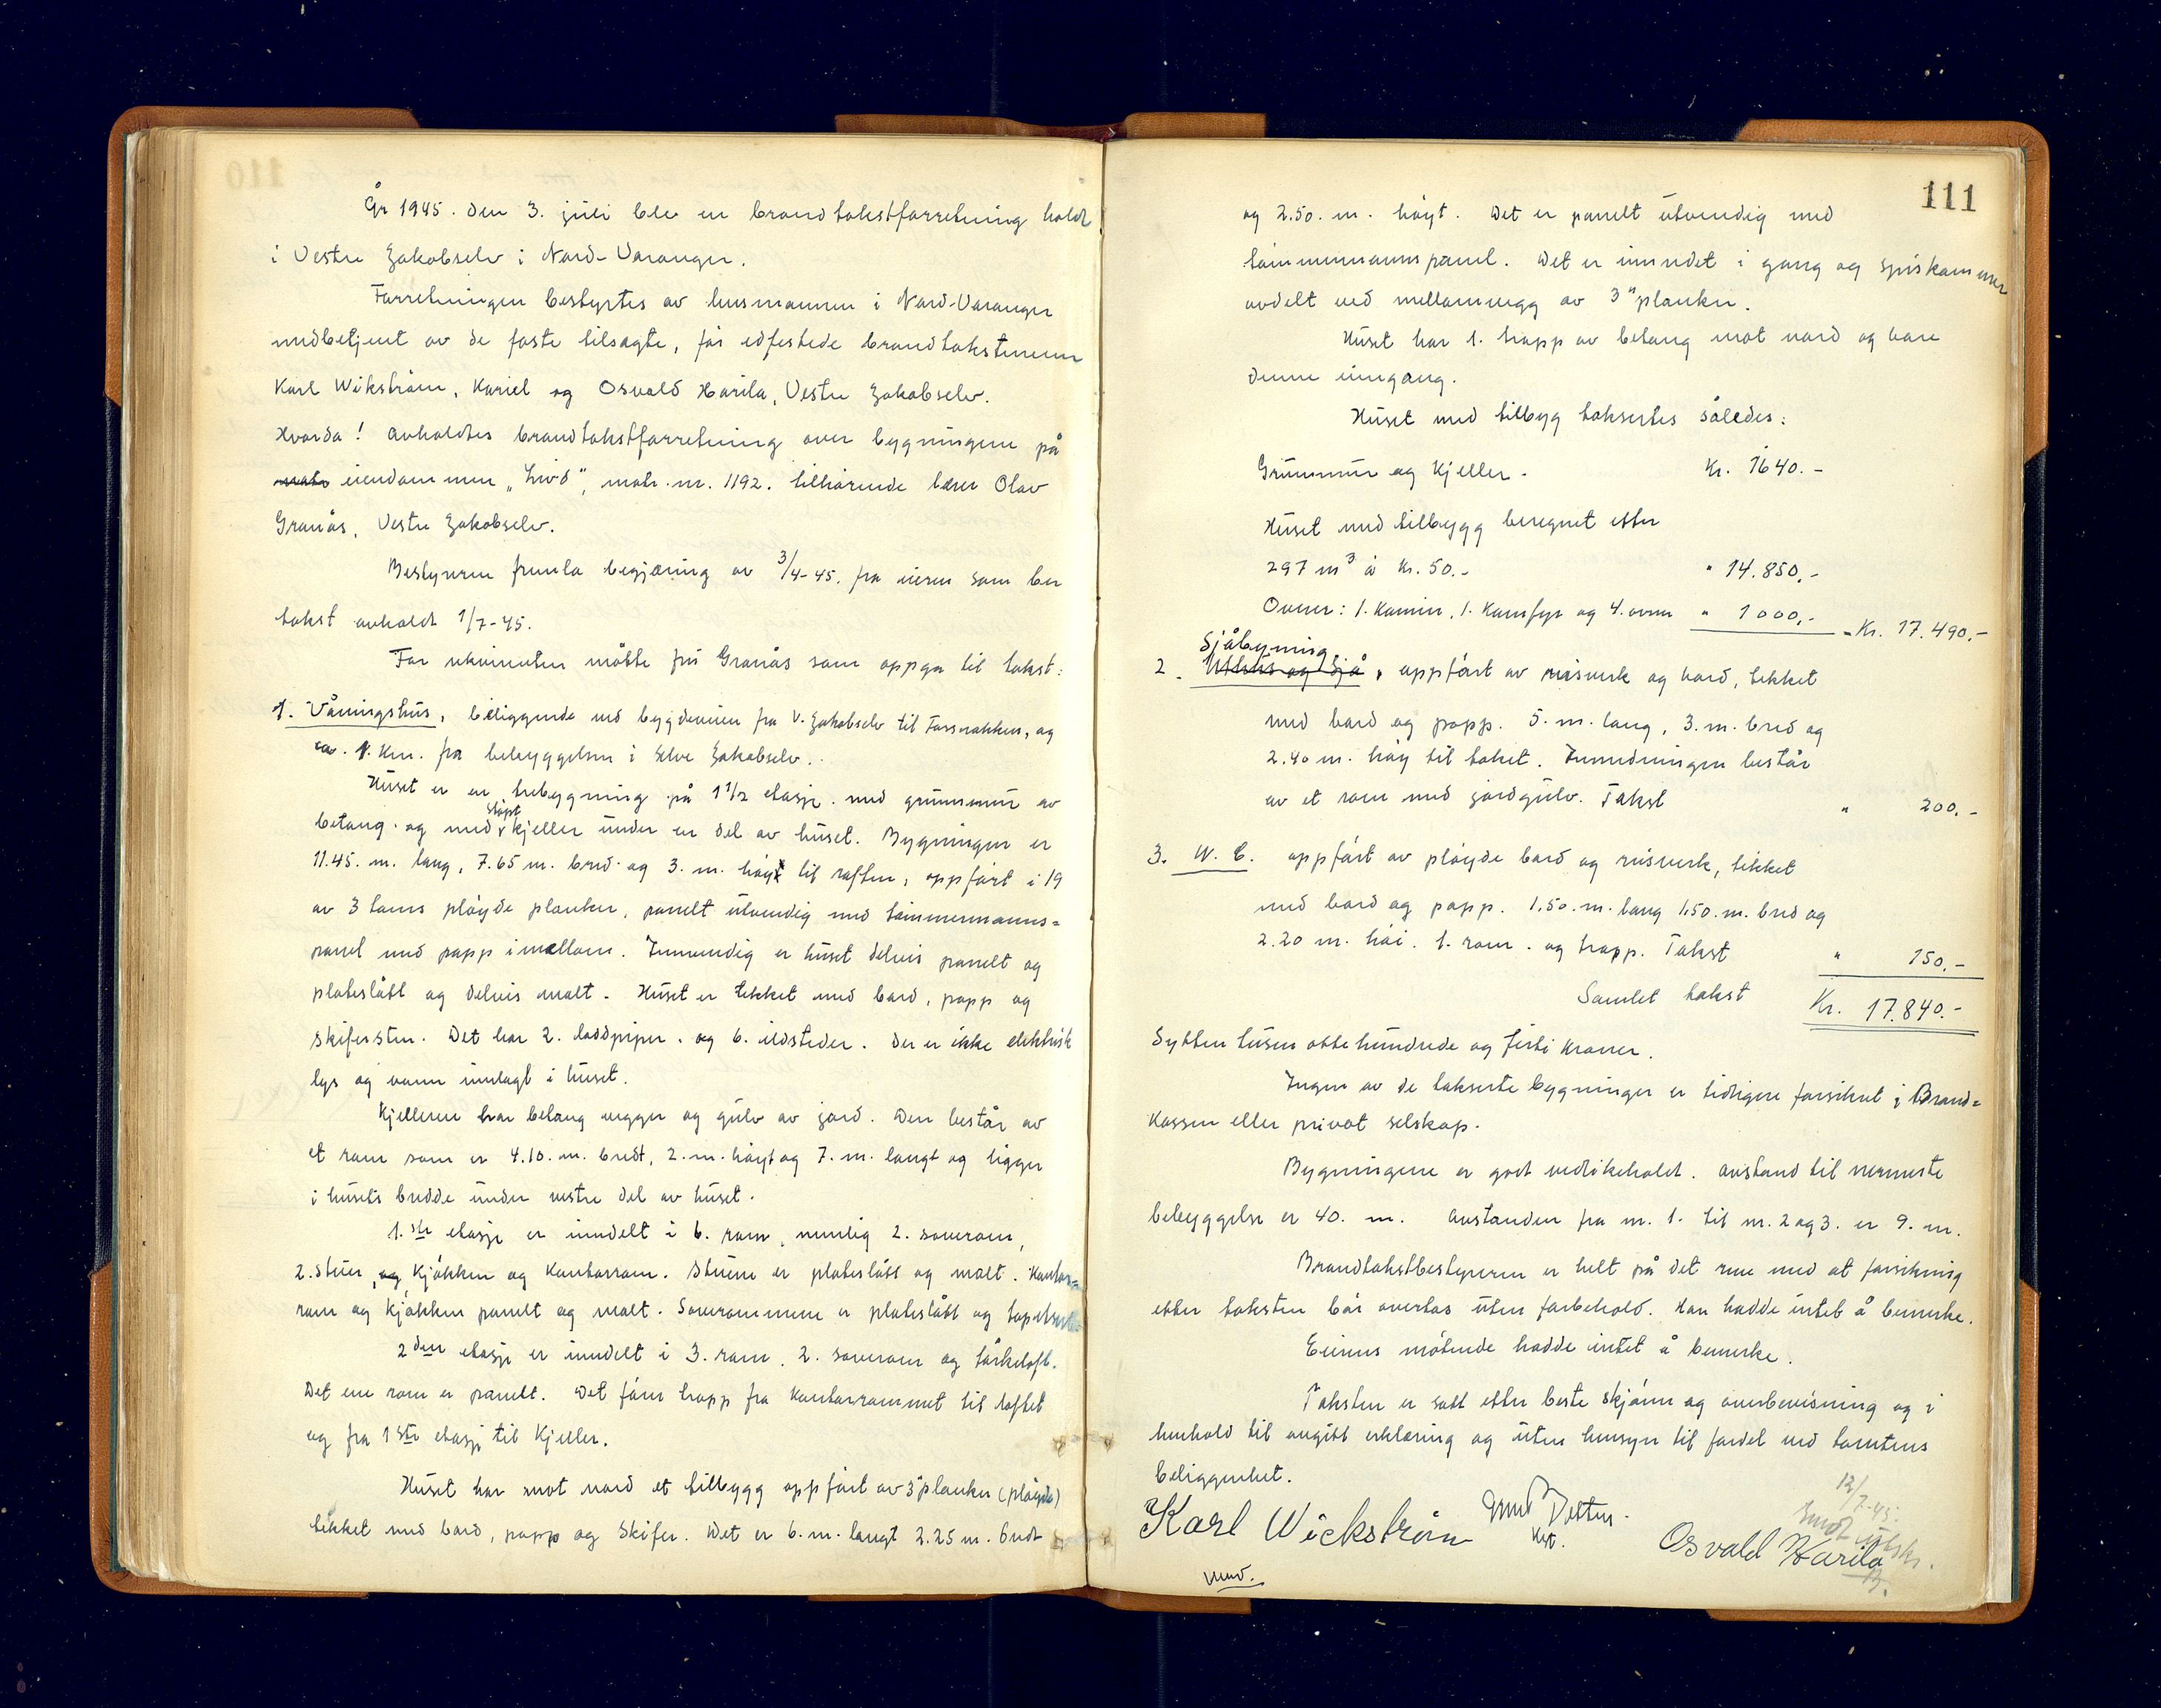 År 1945. den 3. juli ble en brandtakstforretning holdt
i Vestre Jakobselv i Nord-Varanger.
Forretningen bestyrtes av lensmannen i Nord-Varanger
medbetjent av de faste tilsagte, før edfestede brandtakstmenn
Karl Wikstrøm, Kariel og Osvald Harila, Vestre Jakobselv.
Hvorda! avholdtes brandtakstforretning over bygningene på
matr eiendommen „Livd", matr. nr. 1192. tilhørende lærer Olav
Granås, Vestre Jakobselv.
Bestyreren fremla begjæring av 3/4-45. fra eieren som ber
takst avholdt 1/7-45.
For rekvirenten møtte fru Granås som oppga til takst:
1. Våningshus, beliggende ved bygdeveien fra V. Jakobselv til Fossnakken, og
ca. 1. km. fra bebyggelsen i selve Jakobselv.
Huset er en trebygning på 1 1/2 etasje. med grunnmur av
støpt
betong. og med kjeller under en del av huset. Bygningen er
11.45. m. lang, 7.65 m. bred og 3. m. høy til raften, oppført i 19
av 3 toms pløyde planker, panelt utvendig med tømmermanns=
panel med papp imellom. Innvendig er huset delvis panelt og
plateslått og delvis malt. Huset er tekket med bord, papp og
skifersten. Det har 2. loddpiper. og 6. ildsteder. Der er ikke elektrisk
lys og vann innlagt i huset.
Kjelleren har betong vegger og gulv av jord. Den består av
et rom som er 4.10. m. bredt, 2. m. høyt og 7. m. langt og ligger
i husets bredde under vestre del av huset.
1.ste etasje er inndelt i 6. rom, nemlig 2. soverom,
2. stuer, og kjøkken og kontorrom. Stuene er plateslått og malt. Kontor=
rom og kjøkken panelt og malt. Soverommene er plateslått og tapetsert.
2den etasje er inndelt i 3. rom. 2. soverom og tørkeloft.
Det ene rom er panelt. Det fører trapp fra kontorrommet til loftet
og fra 1ste etasje til kjeller.
Huset har mot nord et tilbygg oppført av 3" planker (pløyde)
tekket med bord, papp og skifer. Det er 6. m. langt 2.25 m. bredt
111
og 2.50. m. høyt. Det er panelt utvendig med
tømmermannspanel. Det er innredet i gang og spiskammer
avdelt ved mellomvegg av 3" planker.
Huset har 1. trapp av betong mot nord og bare
denne inngang.
Huset med tilbyg taksertes således:
Grunnmur og Kjeller. Kr. 1640.-
Huset med tilbygg beregnet etter
297 m3 à kr. 50.- " 14.850.-
Ovner: 1. Kamin, 1. Komfyr og 4. ovner " 1000,- = Kr. 17.490.-
Sjåbygning
2. Uthus og Sjå, oppført av reisverk og bord, tekket
med bord og papp. 5. m. lang, 3. m. bred og
2.40 m. høy til taket. Innredningen består
av et rom med jordgulv. Takst " 200.-
3. W. C. oppført av pløyde bord og reisverk, tekket
med bord og papp. 1,50. m. lang 1,50. m. bred og
2.20 m. høi. 1. rom. og trapp. Takst " 150.-
Samlet takst Kr. 17.840.-
Sytten tusen otte hundrede og førti kroner.
Ingen av de takserte bygninger er tidligere forsikret i Brand=
kassen eller privat selskap.
Bygningene er godt vedlikeholdt. Avstand til nermeste
bebyggelse er 40. m. Avstanden fra nr. 1. til nr. 2 og 3. er 9. m.
Brandtakstbestyreren er helt på det rene med at forsikring
etter taksten bør overtas uten forbehold. Han hadde intet å bemerke.
Eierens møtende hadde intet å bemerke.
Taksten er satt etter beste skjønn og overbevisning og i
henhold til avgitt erklæring og uten hensyn til fordel ved tomtens
beliggenhet.
Karl Wickstrøm
Osvald Harila
12/7-45.
Sendt utskr.